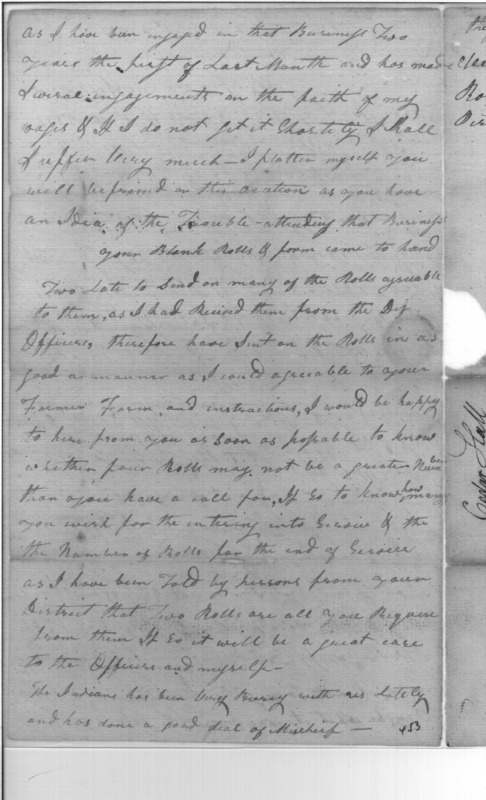 as I have been ingaged in that Buriness Two
years the first of Last Month and has made
Several ingagements on the faith of my
wages & If I do not git it Shortely I Shall
Suffer Very much - I flatter myself you
will befriend on this acation as you have
an Idea of the Trouble - attending that Buriness
your Blank Rolls & form came to hand
Two Late to Send on many of the Rolls agreable
to them, as I had Recived them from the Dif
Officers, therefore have Sent on the Rolls in as
good a manner as I could agreable to your
Former Form and instructions, I would be happy
to here from you as Soon as possable to know
whethin four Rolls may not be a greater Number
than you have a call for, If So to know how many
you wish for the intering into Service & the
the Number of Rolls for the end of Service
as I have been Told by persons from your
District that Two Rolls are all you Require
from them If So it will be a great ease
to the Officers and myself -
The Indians has been Very Buisey with us Lately
and has done a good deal of Mischief -
453
Hall